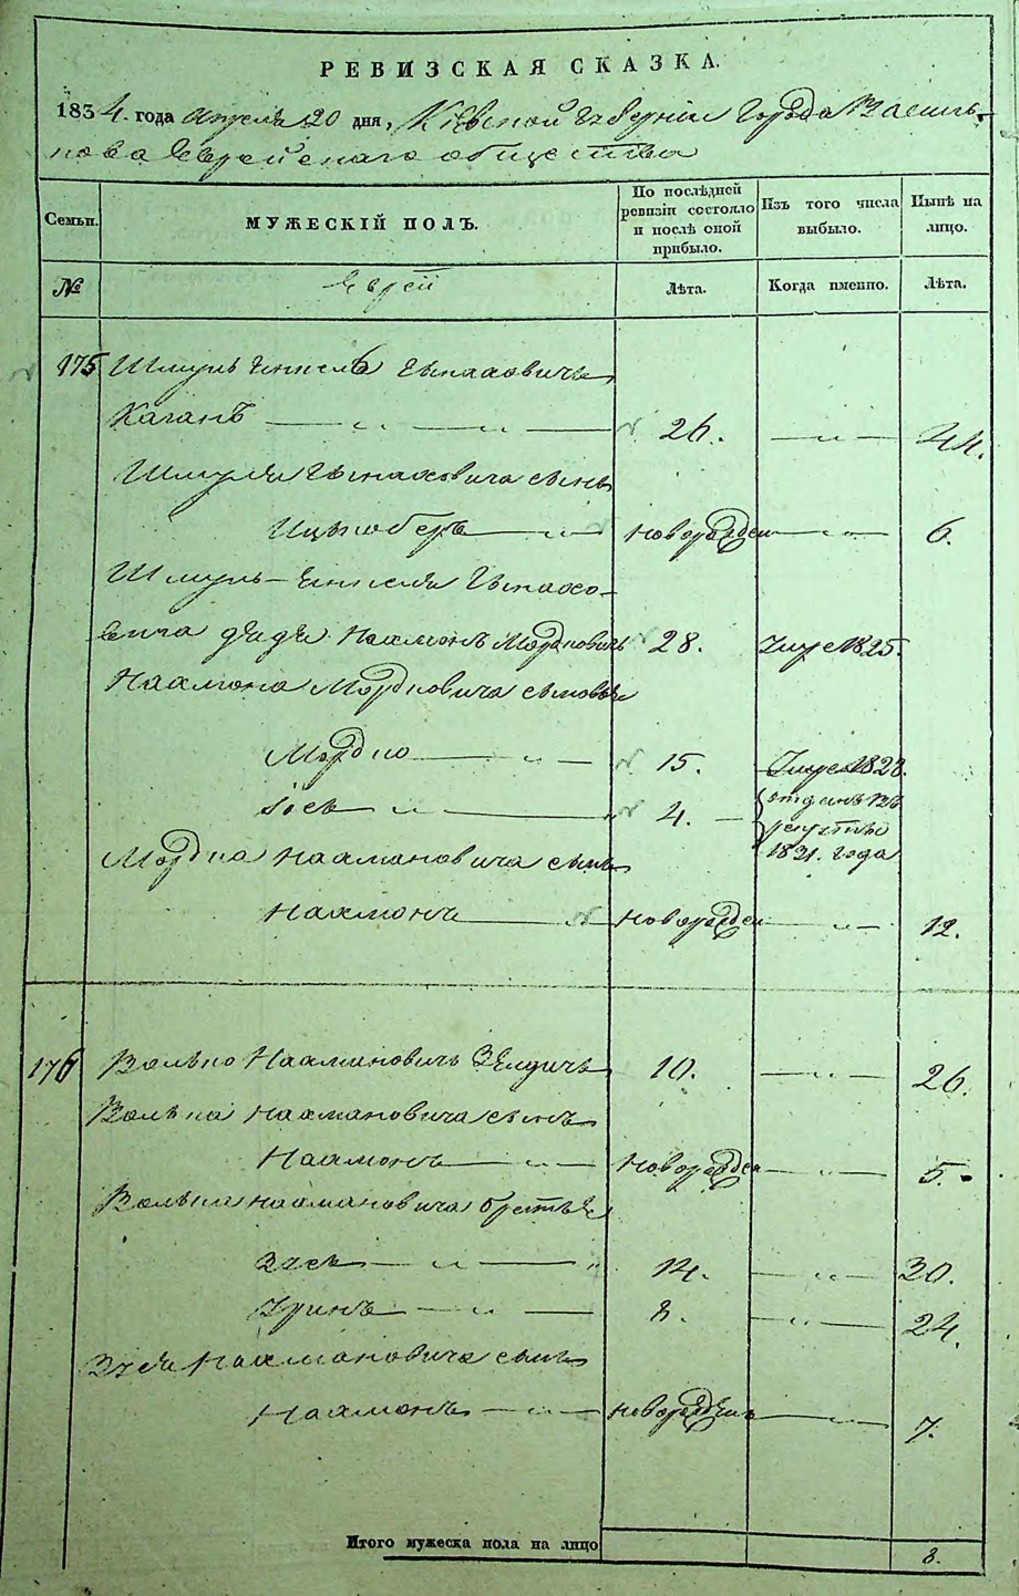 РЕВИЗСКАЯ СКАЗКА.
1834. года Апреля 20 дня, Кіевской губерніи города Василь-
кова Еврейскаго общества
Семьи. МУЖЕСКІЙ ПОЛЪ. По послѣдней ревизіи состояло и послѣ оной прибыло. Изъ того числа выбыло. Нынѣ на лицо.
№ Еврей Лѣта. Когда именно. Лѣта.
175 Шмуль
Каганъ 26. 44.
Шмуля сынъ
Ицькоберъ новорожден 6.
Шмуль
вича дядя Нахмонъ Мордковичь 28. 1825.
Нахмона Мордковича сыновья
Мордко 15. 1828.
Іось 4. отданъ въ рекруты 1831. года
Мордка Нахмановича сынъ
Нахмонъ новорожден 12.
176 Волько Нахмановичь 10. 26.
Волька Нахмановича сынъ
Нахмонъ Новорожден 5.
Волька Нахмановича братья
14. 30.
8. 24.
Нахмановича сынъ
Нахмонъ новорожденъ 7.
Итого мужеска пола на лицо 8.